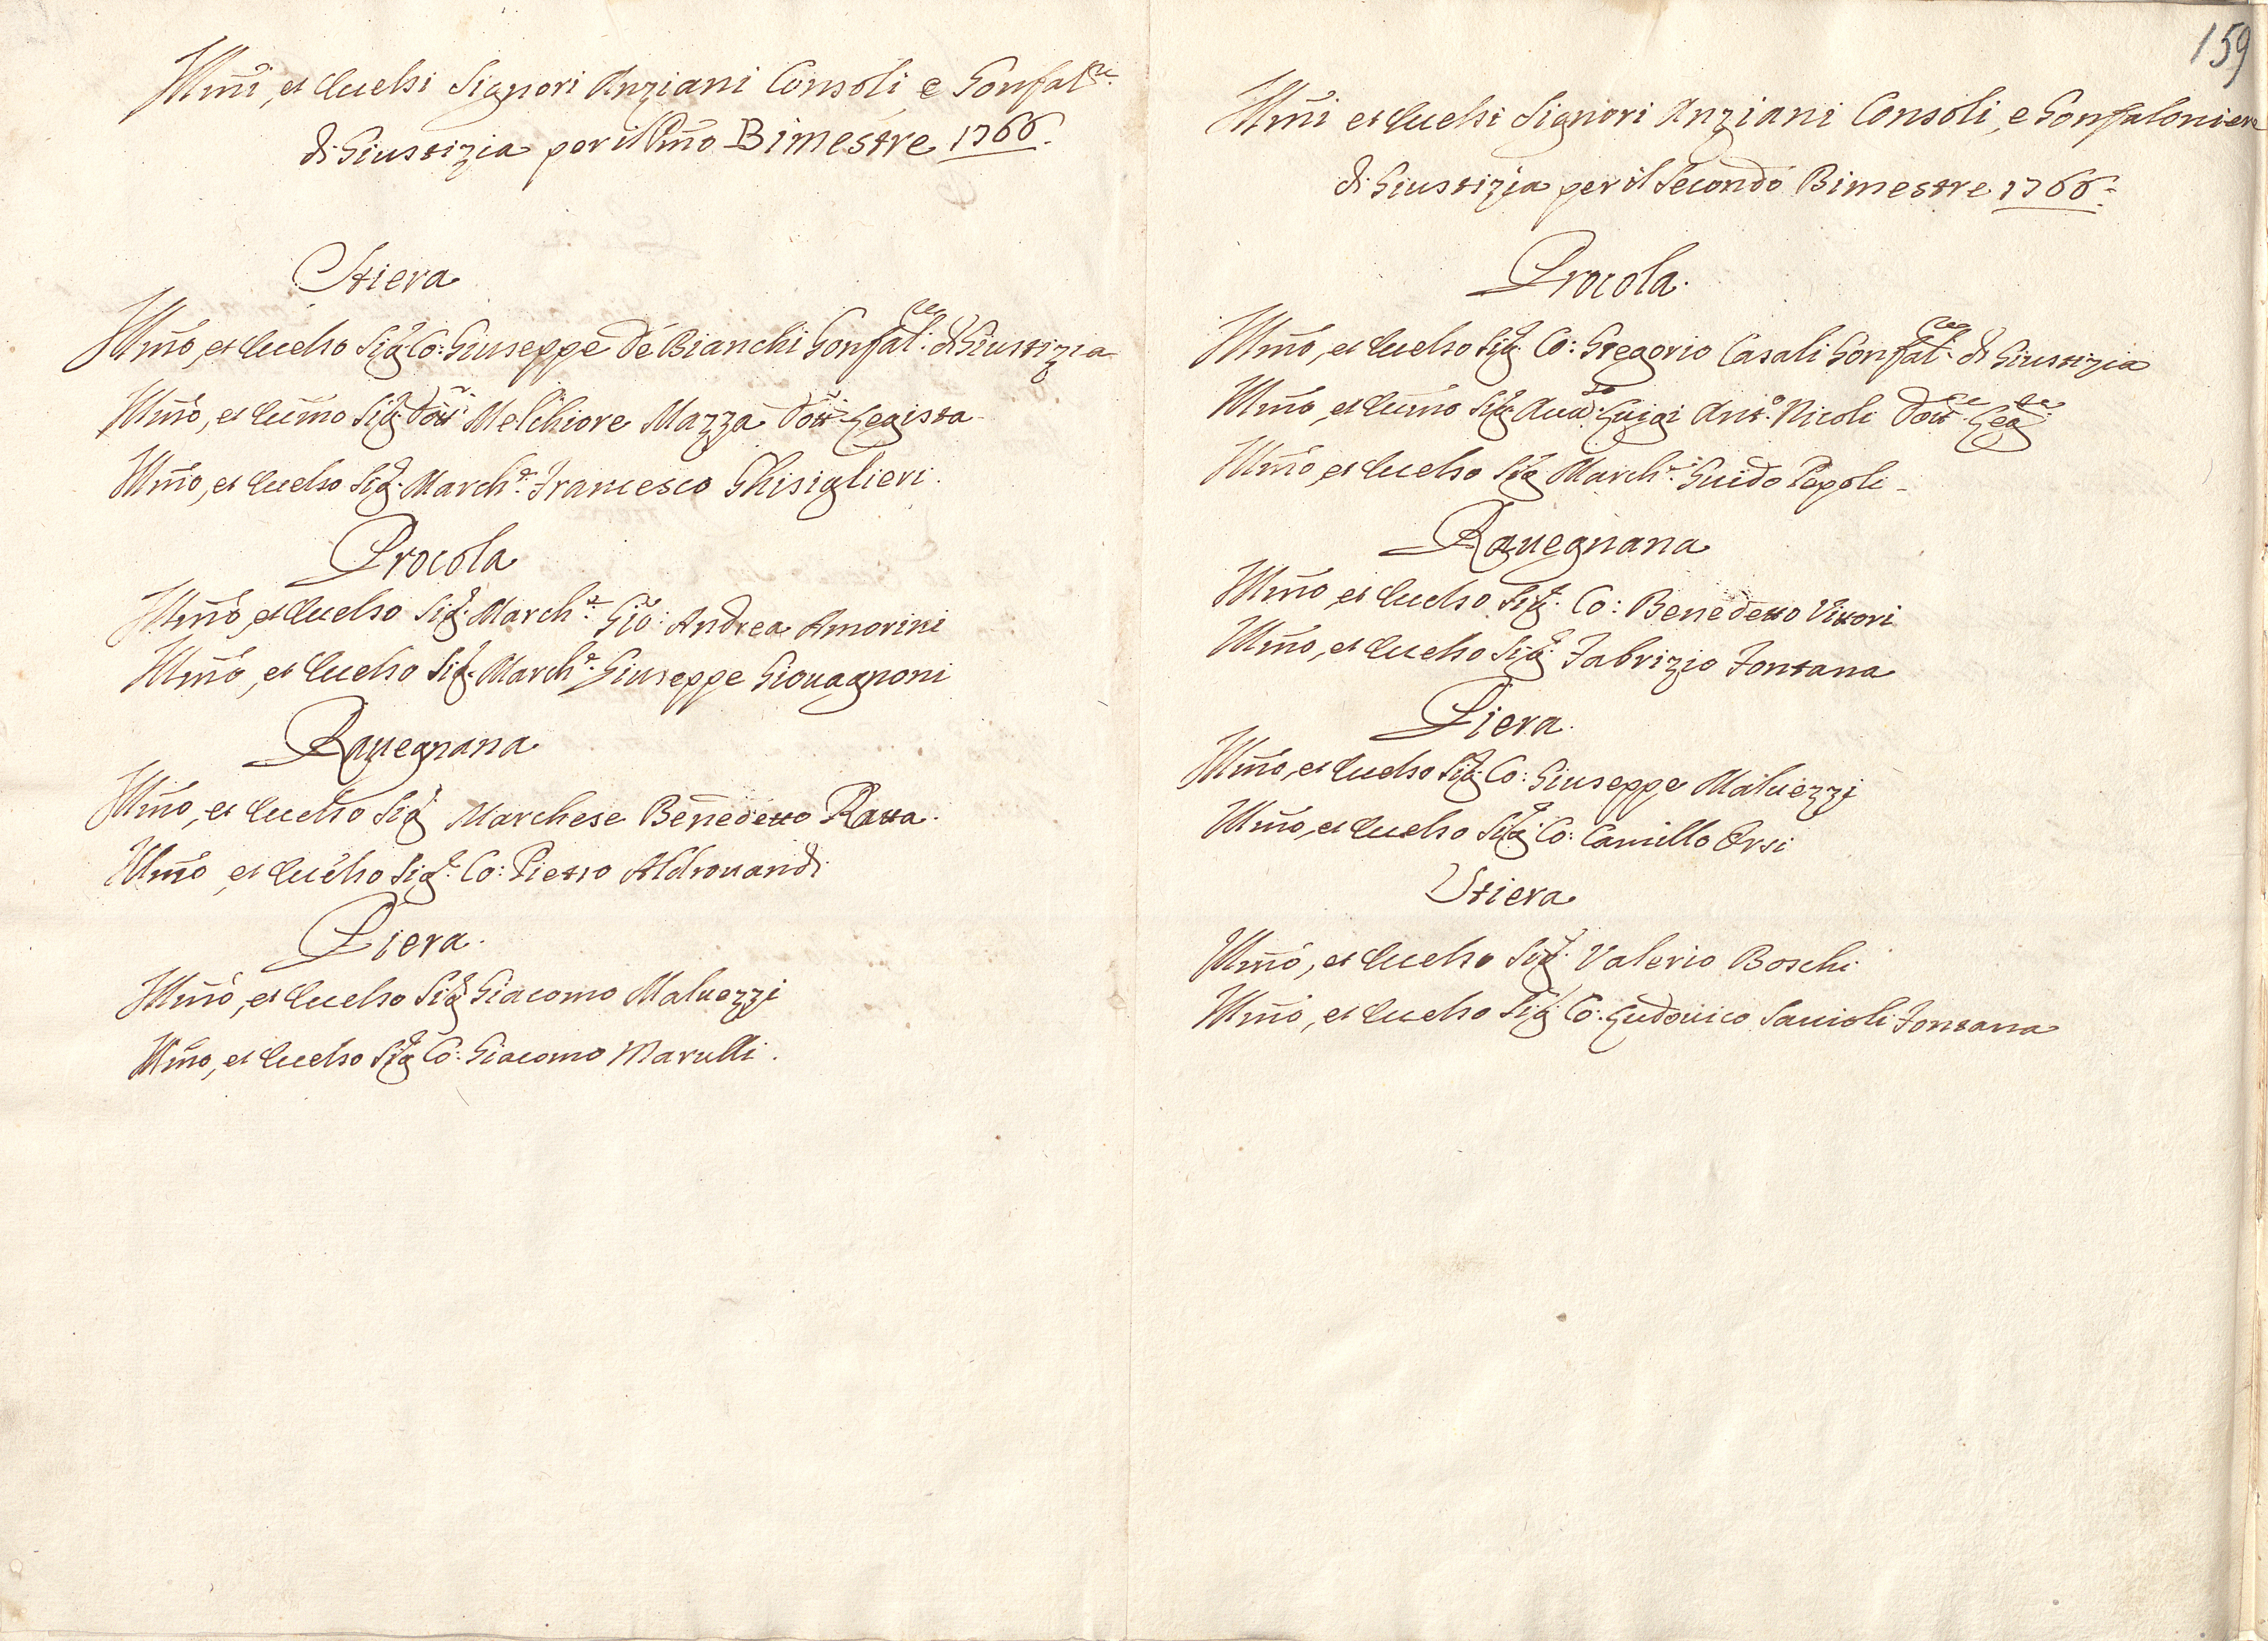 Illm̃i, et Eccelsi Signori Anziani Consoli, e Gonfal.re
di Giustizia per il Pm̃o Bimestre 1766.
Stiera
Illm̃o, et Eccelso Sig.r Co: Giuseppe de Bianchi Gonfal.re di Giustizia
Illm̃o, et Eccm̃o Sig.r Dott.r Melchiore Mazza Dott.r Legista
Illm̃o, et Eccelso Sig.r March.e Francesco Ghisiglieri.
Procola
Illm̃o, et Eccelso Sig.r March.e Gio: Andrea Amorini
Illm̃o, et Eccelso Sig.r March.e Giuseppe Giouagnoni
Rauegnana
Illm̃o, et Eccelso Sig.r Marchese Benedetto Ratta.
Illm̃o et Eccelso Sig.r Co: Pietro Aldrouandi
Piera.
Illm̃o, et Eccelso Sig.r Giacomo Maluezzi
Illm̃o, et Eccelso Sig.r Co: Giacomo Marulli.
159
Illm̃i et Eccelsi Signori Anziani Consoli, e Gonfaloniere
di Giustizia per il Secondo Bimestre 1766.
Procola.
Illm̃o, et Eccelso Sig.r Co: Gregorio Casali Gonfal.re di Giustizia
Illm̃o, et Eccm̃o Sig.r Auu.to Luigi Ant.o Nicoli Dott.re Leg.
Illm̃o, et Eccelso Sig.r March.e Guido Pepoli
Rauegnana
Illm̃o, et Eccelso Sig.r Co: Benedetto Vittori
Illm̃o, et Eccelso Sig.r Fabrizio Fontana
Piera.
Illm̃o, et Eccelso Sig.r Co: Giuseppe Maluezzi
Illm̃o, et Eccelso Sig.r Co: Camillo Orsi
Stiera
Illm̃o, et Eccelso Sig.r Valerio Boschi
Illm̃o, et Eccelso Sig.r Co: Ludouico Sauioli Fontana